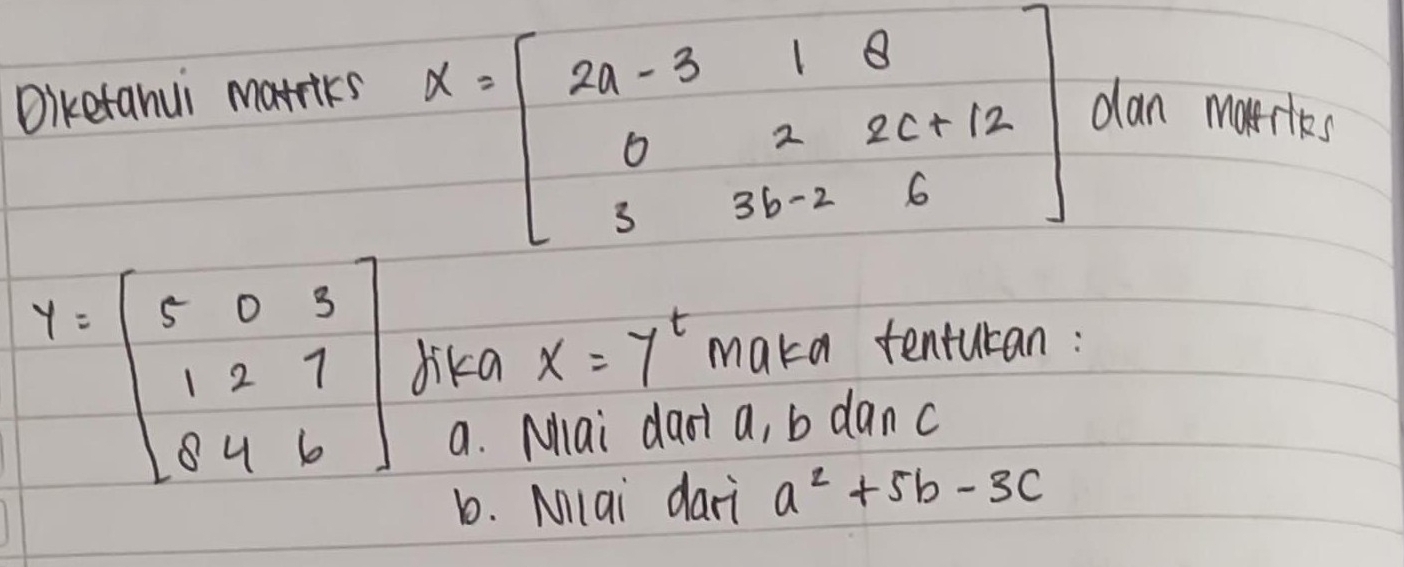 Diketahui matriks X = [ 2a - 3 1 8
0 2 2c + 12
3 3b - 2 6 ] dan matriks
Y = [ 5 0 3
1 2 7
8 4 6 ] Jika X = Y^t maka tentukan :
a. Nilai dari a, b dan c
b. Nilai dari a² + 5b - 3c